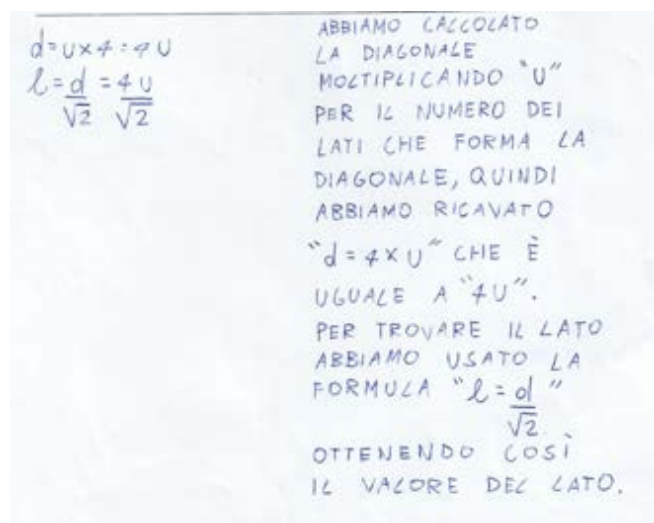 d=Ux4=4U
l=d/√2=4U/√2
ABBIAMO CALCOLATO
LA DIAGONALE
MOLTIPLICANDO "U"
PER IL NUMERO DEI
LATI CHE FORMA LA
DIAGONALE, QUINDI
ABBIAMO RICAVATO
"d=4xU" CHE È
UGUALE A "4U".
PER TROVARE IL LATO
ABBIAMO USATO LA
FORMULA "l=d/√2"
OTTENENDO COSÌ
IL VALORE DEL LATO.